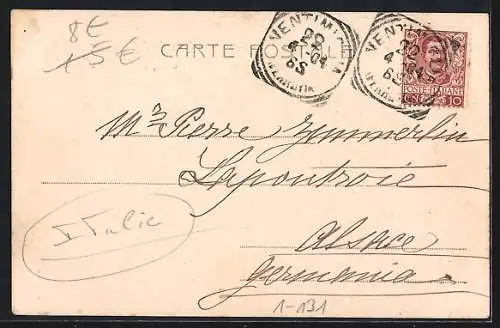 8€
15€
CARTE POSTALE
VENTIMIGLIA
20
4-04
6S
VENTIMIGLIA
20
4-04
6S
POSTE ITALIANE
10
Mr Pierre Zimmerlin
Lapoutroie
Alsace
Germania
Italie
1-131